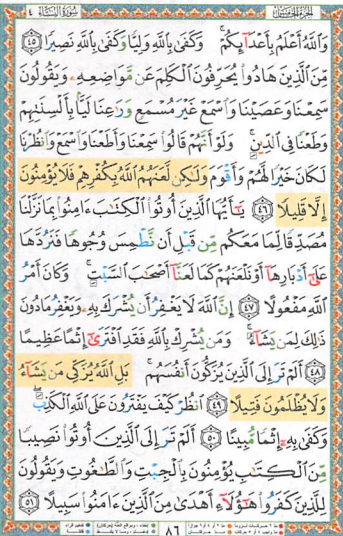 الجزء الخامس سورة النساء ٤
وَاللَّهُ أَعْلَمُ بِأَعْدَائِكُمْ ۚ وَكَفَىٰ بِاللَّهِ وَلِيًّا وَكَفَىٰ بِاللَّهِ نَصِيرًا ٤٥
مِّنَ الَّذِينَ هَادُوا يُحَرِّفُونَ الْكَلِمَ عَن مَّوَاضِعِهِ وَيَقُولُونَ
سَمِعْنَا وَعَصَيْنَا وَاسْمَعْ غَيْرَ مُسْمَعٍ وَرَاعِنَا لَيًّا بِأَلْسِنَتِهِمْ
وَطَعْنًا فِي الدِّينِ ۚ وَلَوْ أَنَّهُمْ قَالُوا سَمِعْنَا وَأَطَعْنَا وَاسْمَعْ وَانظُرْنَا
لَكَانَ خَيْرًا لَّهُمْ وَأَقْوَمَ وَلَٰكِن لَّعَنَهُمُ اللَّهُ بِكُفْرِهِمْ فَلَا يُؤْمِنُونَ
إِلَّا قَلِيلًا ٤٦ يَا أَيُّهَا الَّذِينَ أُوتُوا الْكِتَابَ ءَامِنُوا بِمَا نَزَّلْنَا
مُصَدِّقًا لِّمَا مَعَكُم مِّن قَبْلِ أَن نَّطْمِسَ وُجُوهًا فَنَرُدَّهَا
عَلَىٰ أَدْبَارِهَا أَوْ نَلْعَنَهُمْ كَمَا لَعَنَّا أَصْحَابَ السَّبْتِ ۚ وَكَانَ أَمْرُ
اللَّهِ مَفْعُولًا ٤٧ إِنَّ اللَّهَ لَا يَغْفِرُ أَن يُشْرَكَ بِهِ وَيَغْفِرُ مَا دُونَ
ذَٰلِكَ لِمَن يَشَاءُ ۚ وَمَن يُشْرِكْ بِاللَّهِ فَقَدِ افْتَرَىٰ إِثْمًا عَظِيمًا
٤٨ أَلَمْ تَرَ إِلَى الَّذِينَ يُزَكُّونَ أَنفُسَهُم ۚ بَلِ اللَّهُ يُزَكِّي مَن يَشَاءُ
وَلَا يُظْلَمُونَ فَتِيلًا ٤٩ انظُرْ كَيْفَ يَفْتَرُونَ عَلَى اللَّهِ الْكَذِبَ ۖ
وَكَفَىٰ بِهِ إِثْمًا مُّبِينًا ٥٠ أَلَمْ تَرَ إِلَى الَّذِينَ أُوتُوا نَصِيبًا
مِّنَ الْكِتَابِ يُؤْمِنُونَ بِالْجِبْتِ وَالطَّاغُوتِ وَيَقُولُونَ
لِلَّذِينَ كَفَرُوا هَٰؤُلَاءِ أَهْدَىٰ مِنَ الَّذِينَ ءَامَنُوا سَبِيلًا ٥١
٨٦